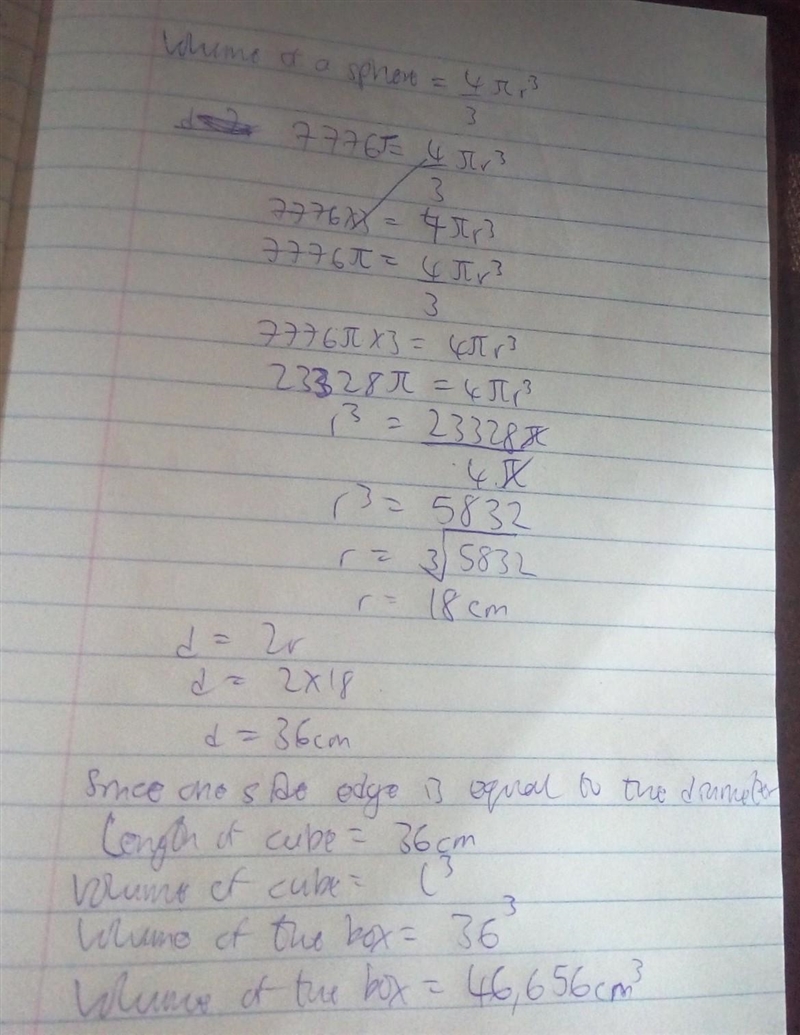 Volume of a sphere = 4πr³/3
7776π = 4πr³/3
7776×3 = 4πr³
7776π = 4πr³/3
7776π×3 = 4πr³
23328π = 4πr³
r³ = 23328π/4π
r³ = 5832
r = ³√5832
r = 18cm
d = 2r
d = 2×18
d = 36cm
Since one side edge is equal to the diameter
Length of cube = 36cm
Volume of cube = l³
Volume of the box = 36³
Volume of the box = 46,656cm³